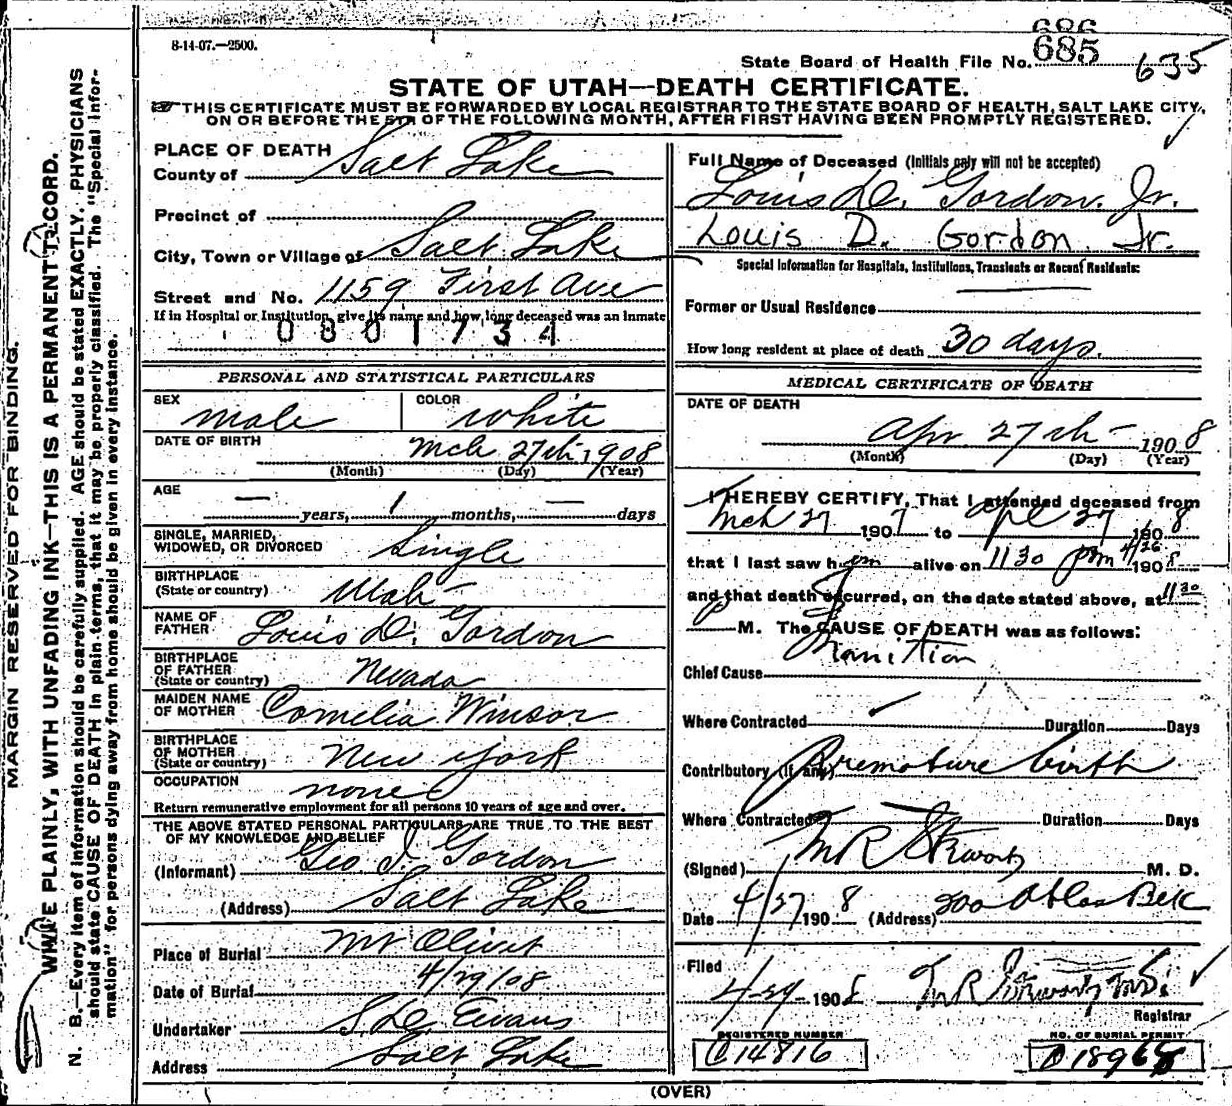 8-14-07.—2500.
686
685
State Board of Health File No.
635
STATE OF UTAH—DEATH CERTIFICATE.
THIS CERTIFICATE MUST BE FORWARDED BY LOCAL REGISTRAR TO THE STATE BOARD OF HEALTH, SALT LAKE CITY,
ON OR BEFORE THE 5TH OF THE FOLLOWING MONTH, AFTER FIRST HAVING BEEN PROMPTLY REGISTERED.
MARGIN RESERVED FOR BINDING.
WRITE PLAINLY, WITH UNFADING INK—THIS IS A PERMANENT RECORD.
N. B.—Every item of information should be carefully supplied. AGE should be stated EXACTLY. PHYSICIANS
should state CAUSE OF DEATH in plain terms, that it may be properly classified. The "Special Infor-
mation" for persons dying away from home should be given in every instance.
PLACE OF DEATH
County of Salt Lake
Precinct of
City, Town or Village of Salt Lake
Street and No. 1159 First Ave
If in Hospital or Institution, give its name and how long deceased was an inmate
0801734
PERSONAL AND STATISTICAL PARTICULARS
SEX male COLOR white
DATE OF BIRTH Mch 27th, 1908
(Month) (Day) (Year)
AGE — years, 1 months, — days
SINGLE, MARRIED,
WIDOWED, OR DIVORCED Single
BIRTHPLACE
(State or country) Utah
NAME OF
FATHER Louis D. Gordon
BIRTHPLACE
OF FATHER
(State or country) Nevada
MAIDEN NAME
OF MOTHER Cornelia Winsor
BIRTHPLACE
OF MOTHER
(State or country) New York
OCCUPATION none
Return remunerative employment for all persons 10 years of age and over.
THE ABOVE STATED PERSONAL PARTICULARS ARE TRUE TO THE BEST
OF MY KNOWLEDGE AND BELIEF
(Informant) Geo J. Gordon
(Address) Salt Lake
Place of Burial Mt Olivet
Date of Burial 4/29/08
Undertaker S. D. Evans
Address Salt Lake
Full Name of Deceased (Initials only will not be accepted)
Louis D. Gordon. Jr.
Louis D. Gordon Jr.
Special Information for Hospitals, Institutions, Transients or Recent Residents:
Former or Usual Residence
How long resident at place of death 30 days.
MEDICAL CERTIFICATE OF DEATH
DATE OF DEATH
Apr 27th 1908
(Month) (Day) (Year)
I HEREBY CERTIFY, That I attended deceased from
Mch 27 1907 to Apl 27 1908
that I last saw him alive on 11 30 pm 4/26 1908
and that death occurred, on the date stated above, at 11 30
P M. The CAUSE OF DEATH was as follows:
Chief Cause
Where Contracted Duration Days
Contributory (if any) Premature birth
Where Contracted Duration Days
(Signed) M. D.
Date 4/27 1908 (Address)
Filed
4-29- 1908
Registrar
REGISTERED NUMBER
C14816
NO. OF BURIAL PERMIT
(OVER)